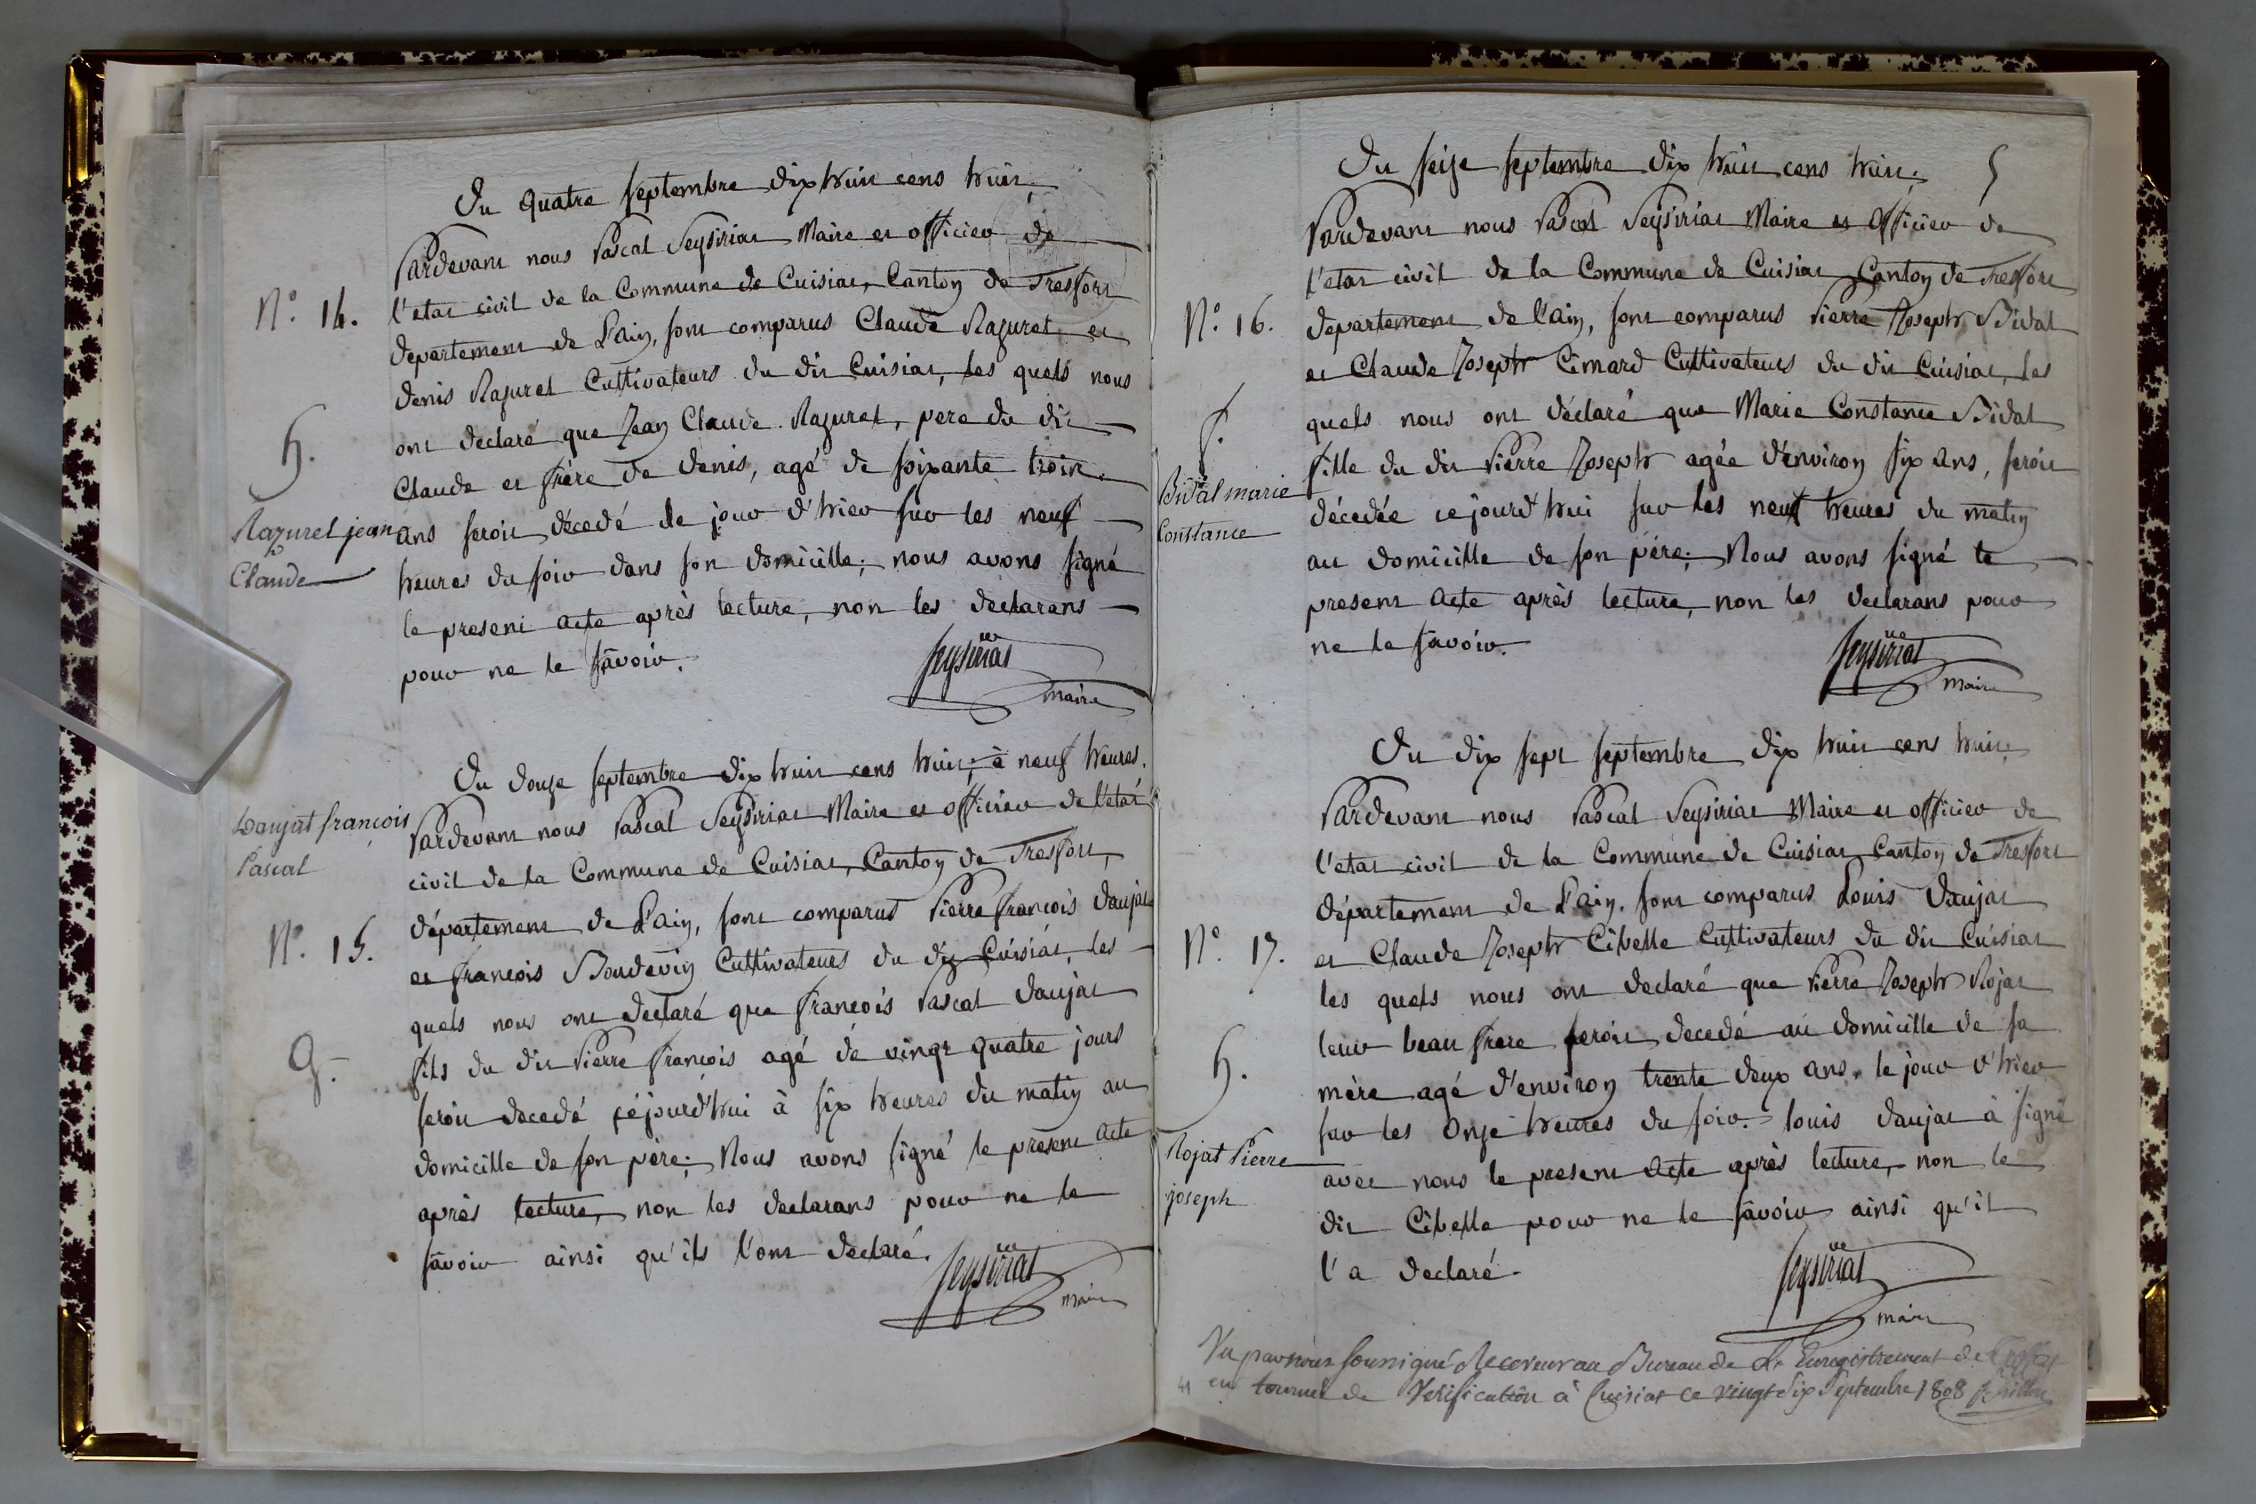 Du quatre septembre dix huit cens huit.
Pardevant nous Pascal Seysiriat Maire et officier de
l'etat civil de la Commune de Cuisiat, Canton de Tresfort
N.° 14.
departement de l'ain, sont comparus Claude Razurel et
denis Razurel Cultivateurs du dit Cuisiat, les quels nous
ont declaré que Jean Claude Razurel, pere du dit
h.
Claude et frère de denis, agé de soixante trois
Razurel jean
Claude
ans seroit décedé le jour d'hier sur les neuf
heures du soir dans son domicille; nous avons signé
le present acte après lecture, non les declarans
pour ne le savoir.
Seysiriat
maire
Du douze septembre dix huit cens huit; à neuf heures.
Daujat françois
Pascal
Pardevant nous Pascal Seysiriat Maire et officier de l'etat
civil de la Commune de Cuisiat, Canton de Tresfort,
N.° 15.
département de l'ain, sont comparus Pierre françois daujat
et françois Boudevin Cultivateurs du dit Cuisiat, les
quels nous ont declaré que françois Pascal daujat
g.
fils du dit Pierre françois agé de vingt quatre jours
seroit decedé cejourd'hui à six heures du matin au
domicille de son père; Nous avons signé le present acte
après lecture, non les declarans pour ne le
savoir ainsi qu'ils l'ont declaré.
Seysiriat
maire
Du seize septembre dix huit cens huit.
5
Pardevant nous Pascal Seysiriat Maire et officier de
l'etat civil de la Commune de Cuisiat, Canton de Tresfort
N.° 16.
departement de l'ain, sont comparus Pierre Joseph Bidal
et Claude Joseph Cimard Cultivateurs du dit Cuisiat, les
quels nous ont déclaré que Marie Constance Bidal
f.
fille du dit Pierre Joseph agée d'environ six ans, seroit
Bidal marie
Constance
décedée cejourd'hui sur les neuf heures du matin
au domicille de son père; Nous avons signé le
present acte après lecture, non les declarans pour
ne le savoir.
Seysiriat
maire
Du dix sept septembre dix huit cens huit.
Pardevant nous Pascal Seysiriat Maire et officier de
l'etat civil de la Commune de Cuisiat Canton de Tresfort
département de l'ain. sont comparus Louis Daujat
N.° 17.
et Claude Joseph Cibelle Cultivateurs du dit Cuisiat
les quels nous ont declaré que Pierre Joseph Rojat
leur beau frere seroit decedé au domicille de sa
h.
mère agé d'environ trente deux ans, le jour d'hier
sur les onze heures du soir. louis daujat à signé
Rojat Pierre
joseph
avec nous le present acte après lecture, non le
dit Cibelle pour ne le savoir ainsi qu'il
l'a declaré.
Seysiriat
maire
Vu par nous soussigné Receveur au Bureau de l'Enregistrement de Tresfort
en tournée de Verification à Cuisiat ce vingt six Septembre 1808